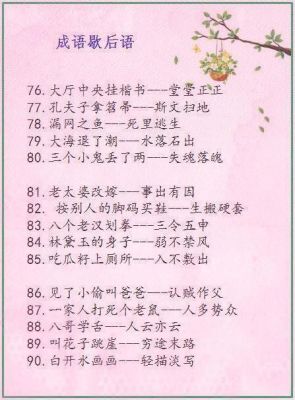 成语歇后语
76. 大厅中央挂楷书---堂堂正正
77. 孔夫子拿笤帚---斯文扫地
78. 漏网之鱼---死里逃生
79. 大海退了潮---水落石出
80. 三个小鬼丢了两---失魂落魄
81. 老太婆改嫁---事出有因
82. 按别人的脚码买鞋---生搬硬套
83. 八个老汉划拳---三令五申
84. 林黛玉的身子---弱不禁风
85. 吃瓜籽上厕所---入不敷出
86. 见了小偷叫爸爸---认贼作父
87. 一家人打死个老鼠---人多势众
88. 八哥学舌---人云亦云
89. 叫花子跳崖---穷途末路
90. 白开水画画---轻描淡写